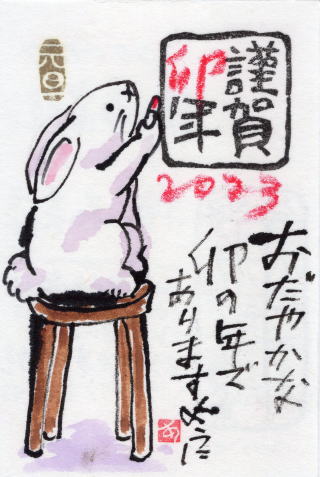 元旦
謹賀
卯年
2023
おだやかな
卯の年で
あります様に
あ